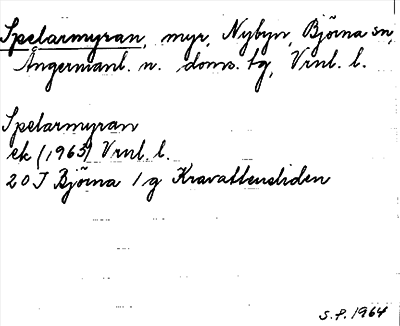 Spelarmyran, myr, Nybyn, Björna sn,
Ångermanl. n. doms. tg, Vrnl. l.
Spelarmyran
ek (1963) Vrnl. l.
20J Björna 1g Kravattensliden
S.P. 1964